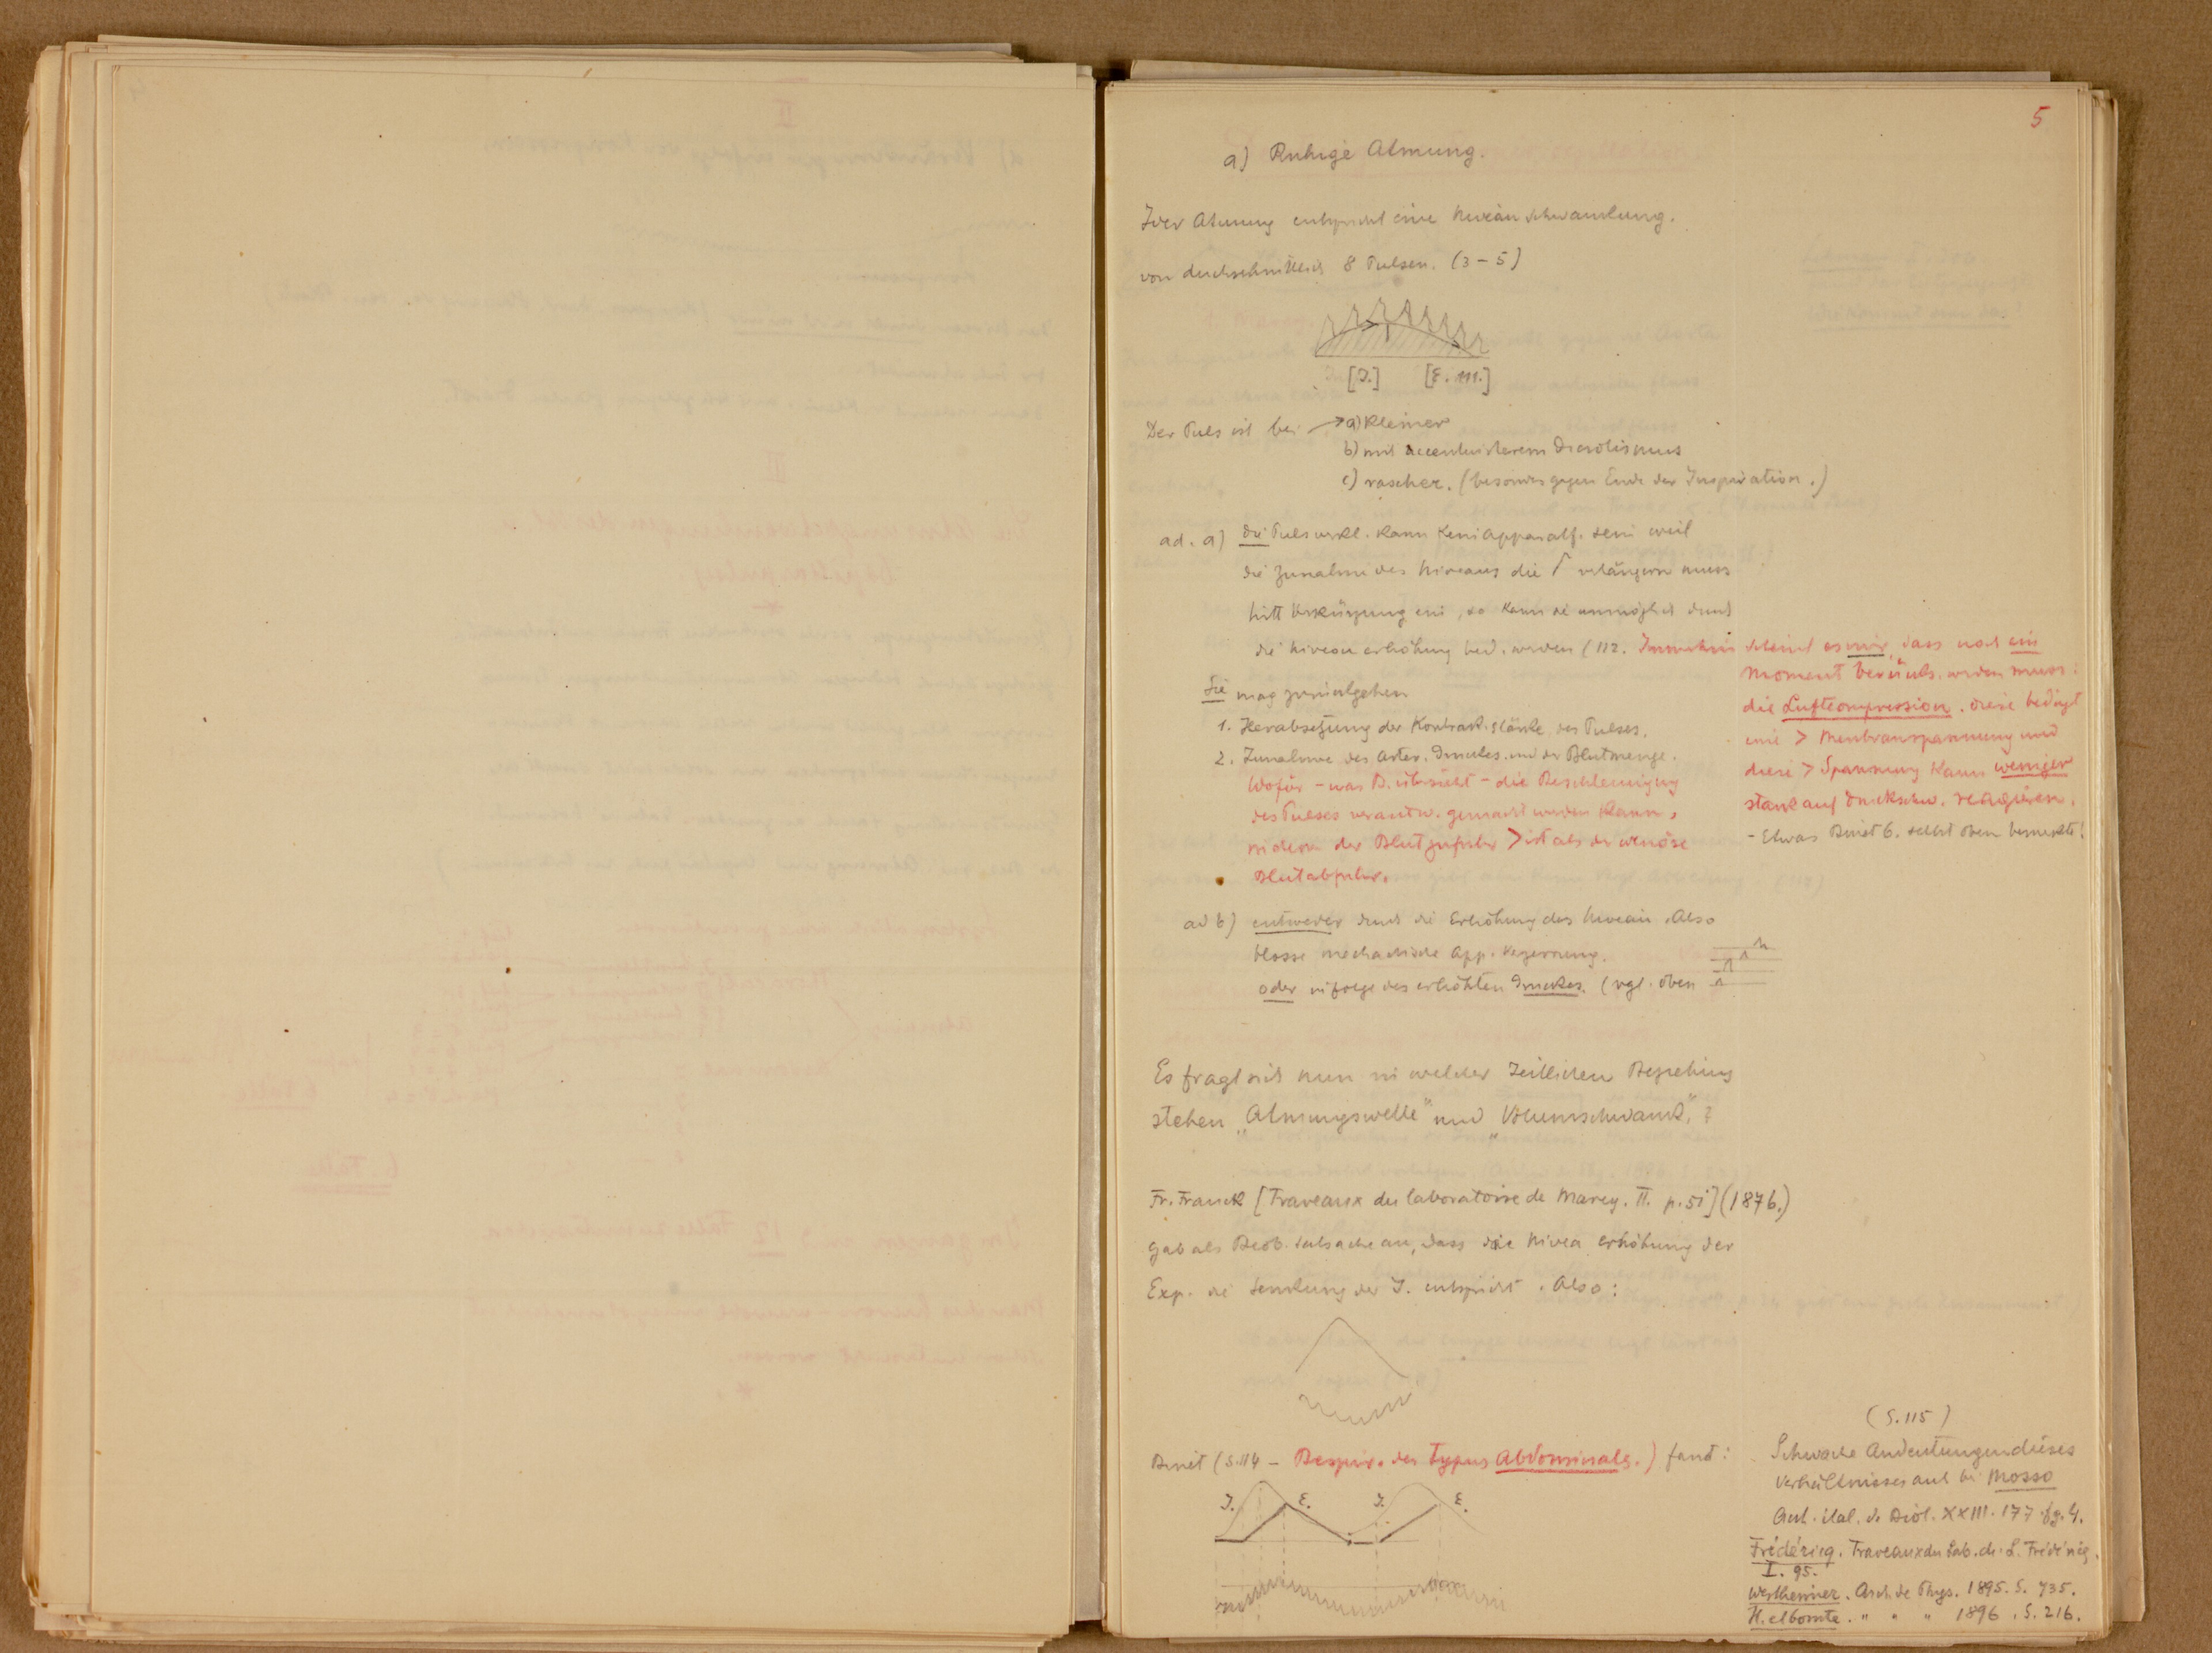 5
a) Ruhige Atmung.
Jder Atmung entspricht eine Niveauschwankung.
von durchschnittlich 8 Pulsen. (3-5)
[I.] [E. 111.]
Der Puls ist bei → a) kleiner
b) mit accentuirterem Dicrotismus
c) rascher. (besonders gegen Ende der Inspiration.)
ad. a) die Pulsverkl. kann kein Apparatf. sein weil
die Zunahme des Niveaus die verlängern muss
tritt Verkürzung ein, so kann sie unmöglich durch
die Niveauerhöhung bed. werden (112. Immerhin scheint es mir, dass noch ein
Moment berücks. werden muss:
die Luftcompression. diese bedingt
eine > Membranspannung und
diese > Spannung kann weniger
stark auf Druckschw. reagieren.
- Etwas Binet 6. selbst oben bemerkte!
Sie mag zurückgehen
1. Herabsetzung der Kontrakt.stärke des Pulses.
2. Zunahme des Arter. Druckes und der Blutmenge.
Wofür - was B. übersieht - die Beschleunigung
des Pulses verantw. gemacht werden kann,
indem der Blutzufuhr > ist als der venöse
Blutabfuhr.
ad b) entweder durch die Erhöhung des Niveau. Also
blosse mechanische App. Verzerrung.
oder infolge des erhöhten Druckes. (vgl. oben
Es fragt sich nun in welcher zeitlichen Beziehung
stehen „Atmungswelle" und „Volumschwank."?
Fr. Franck [Traveaux du laboratoire de Marey. II. p. 51] (1876.)
gab als Beob. tatsache an, dass die Nivea erhöhung der
Exp. die Senkung der I. entspricht. Also:
Binet (S. 114 - Respir. des Typus Abdominals.) fand:
I. E. I. E.
(S. 115)
Schwache Andeutungen dieses
Verhältnisses auch bei Mosso
Arch. ital. de Biol. XXIII. 177. fg. 4.
Frédéricq. Traveaux du Lab. de L. Frédéricq.
I. 95.
Wertheimer. Arch. de Phys. 1895. S. 735.
H. . " " " 1896. S. 216.